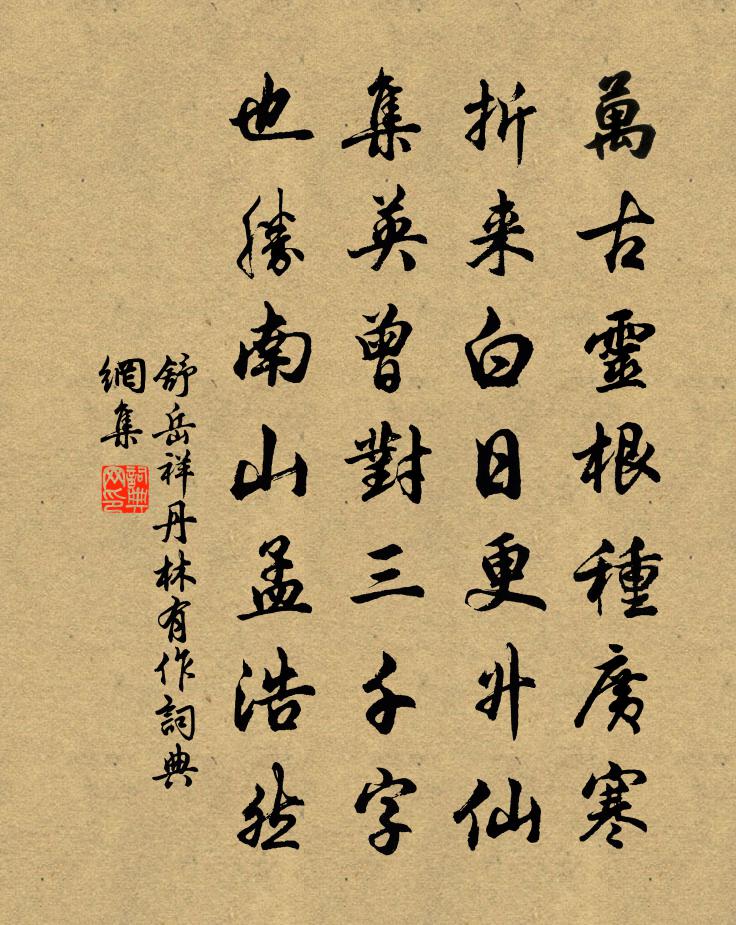 萬古靈根種廣寒
折来白日更升仙
集英曾對三千字
也勝南山孟浩然
舒岳祥丹林有作詞典
網集
詞典
网印